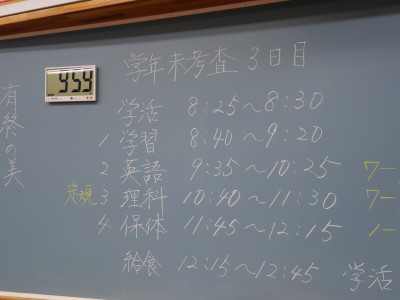 学年末考査 3日目
学活 8:25〜8:30
1 学習 8:40〜9:20
2 英語 9:35〜10:25 ワー
定規 3 理科 10:40〜11:30 ワー
4 保体 11:45〜12:15 ノー
給食 12:15〜12:45 学活
有終の美